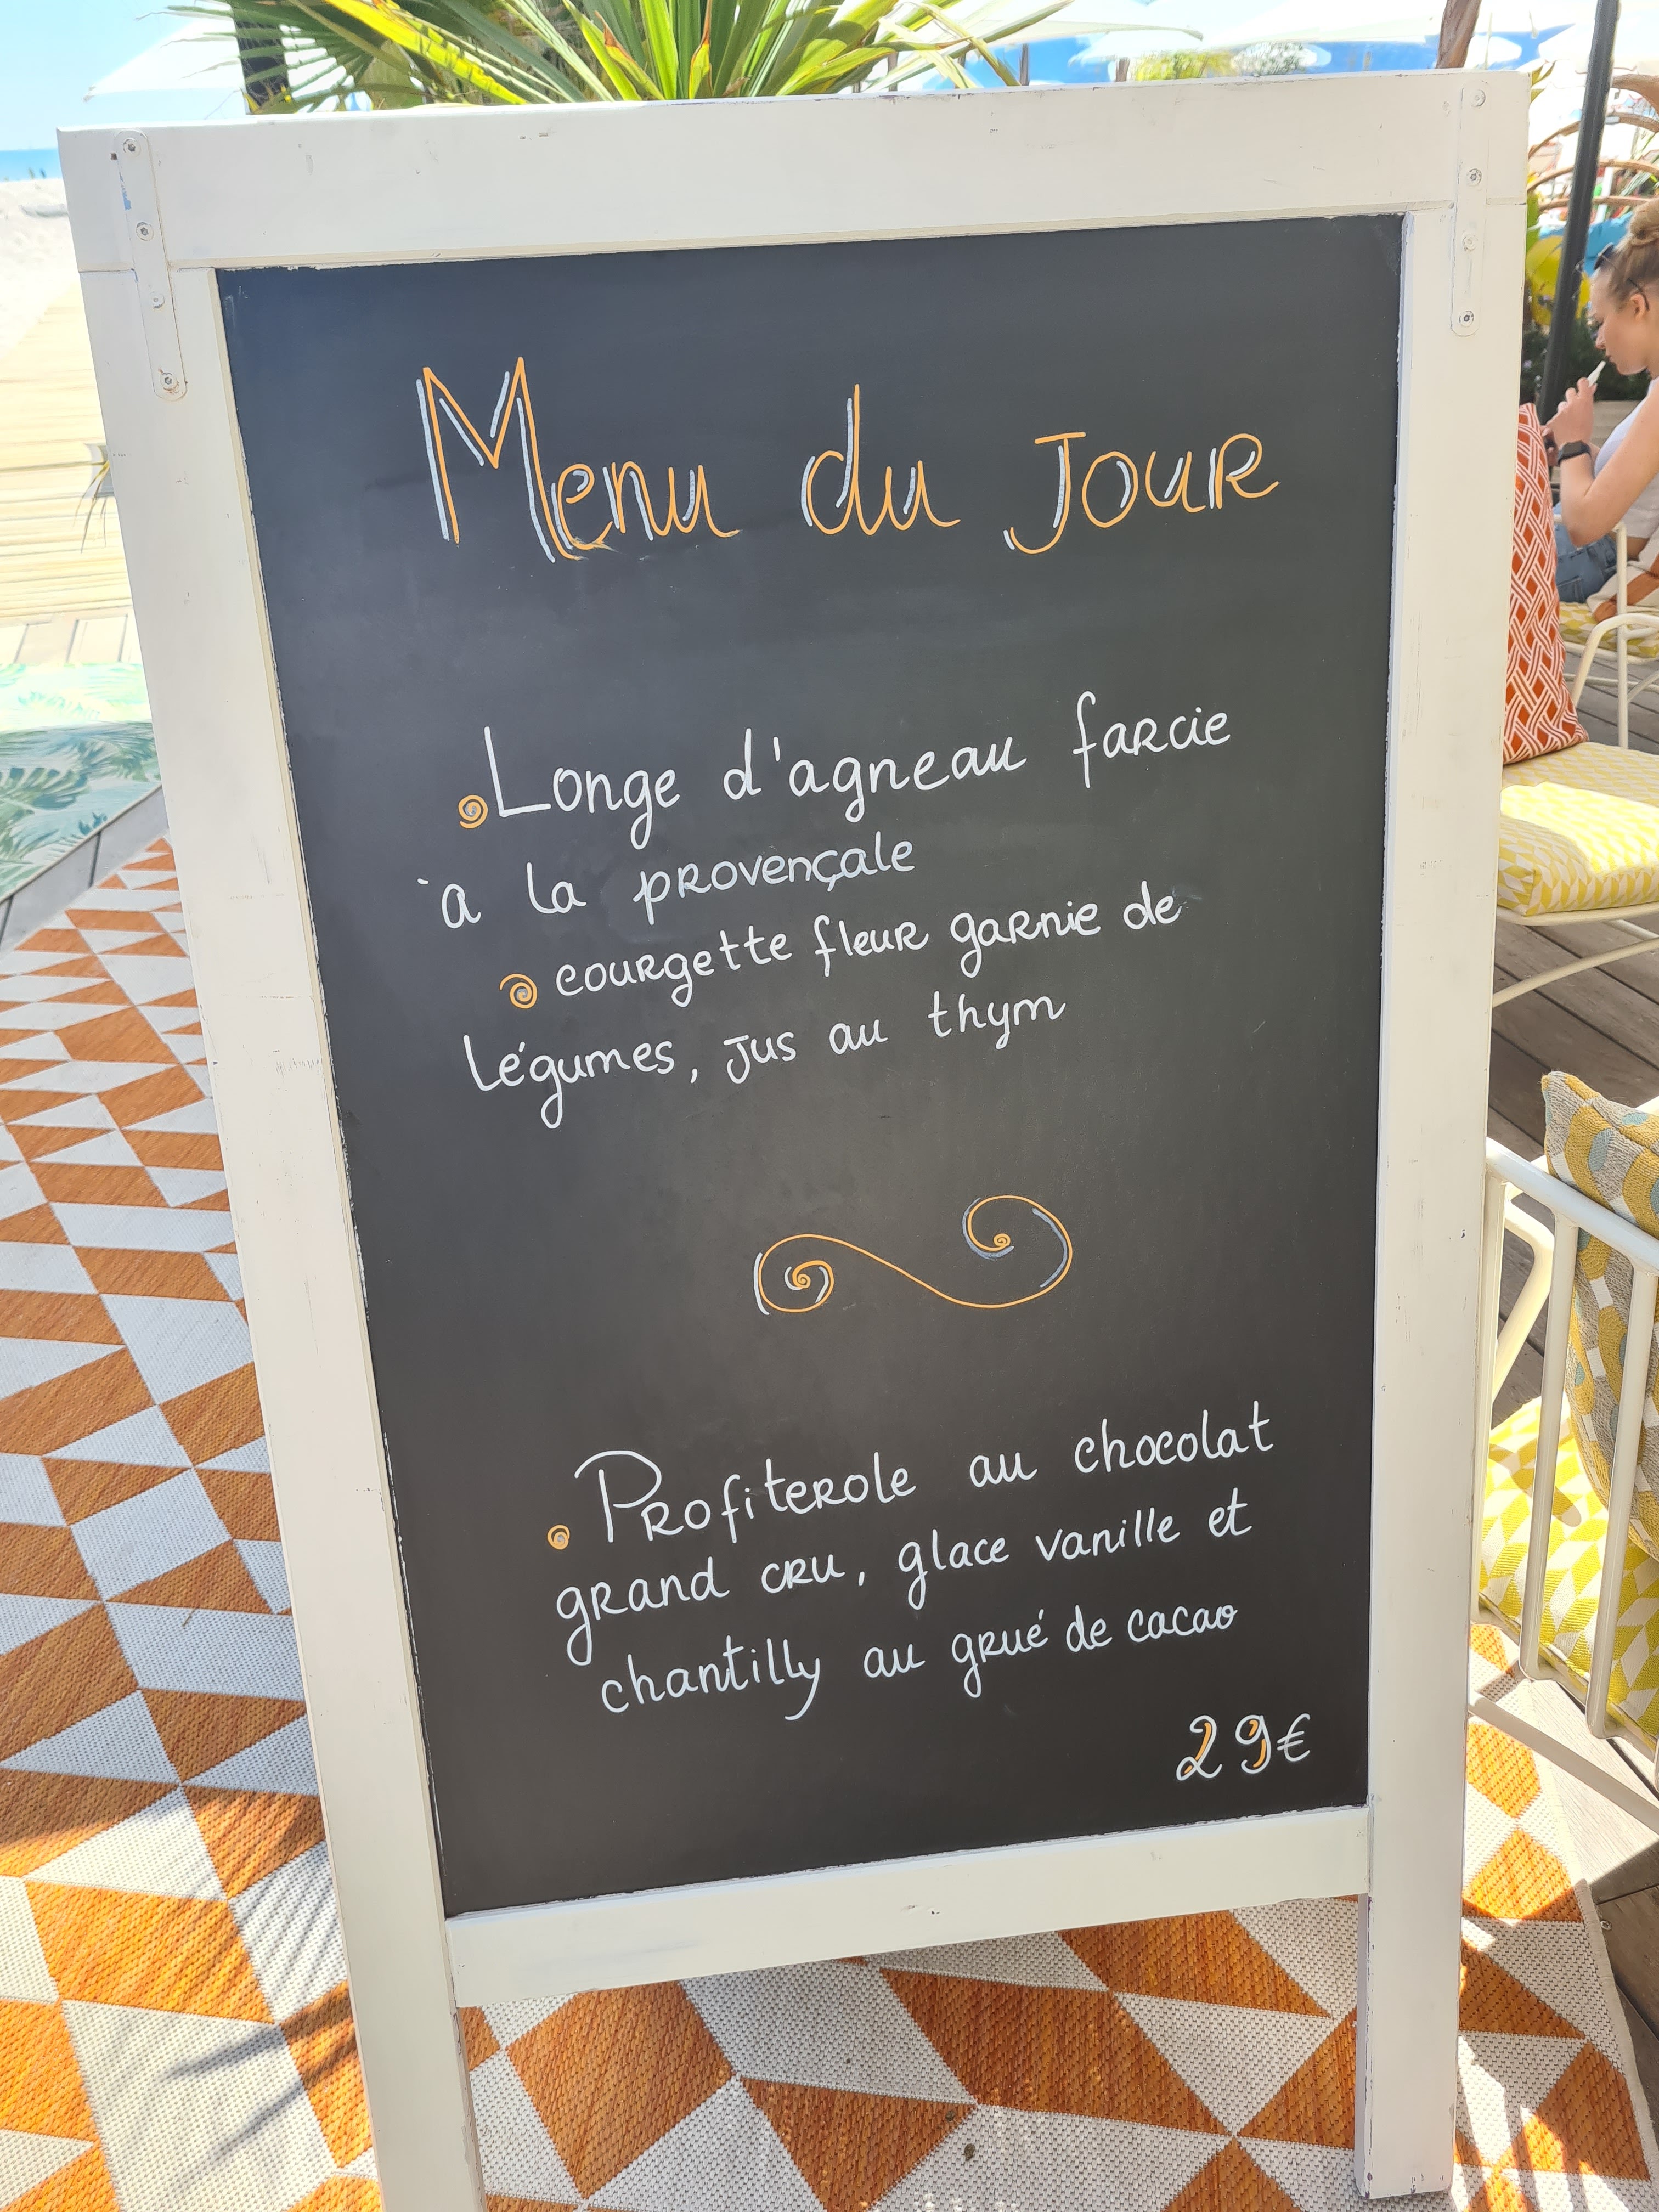 Menu du Jour
Longe d'agneau farcie
à la provençale
courgette fleur garnie de
légumes, jus au thym
Profiterole au chocolat
grand cru, glace vanille et
chantilly au grué de cacao
29€